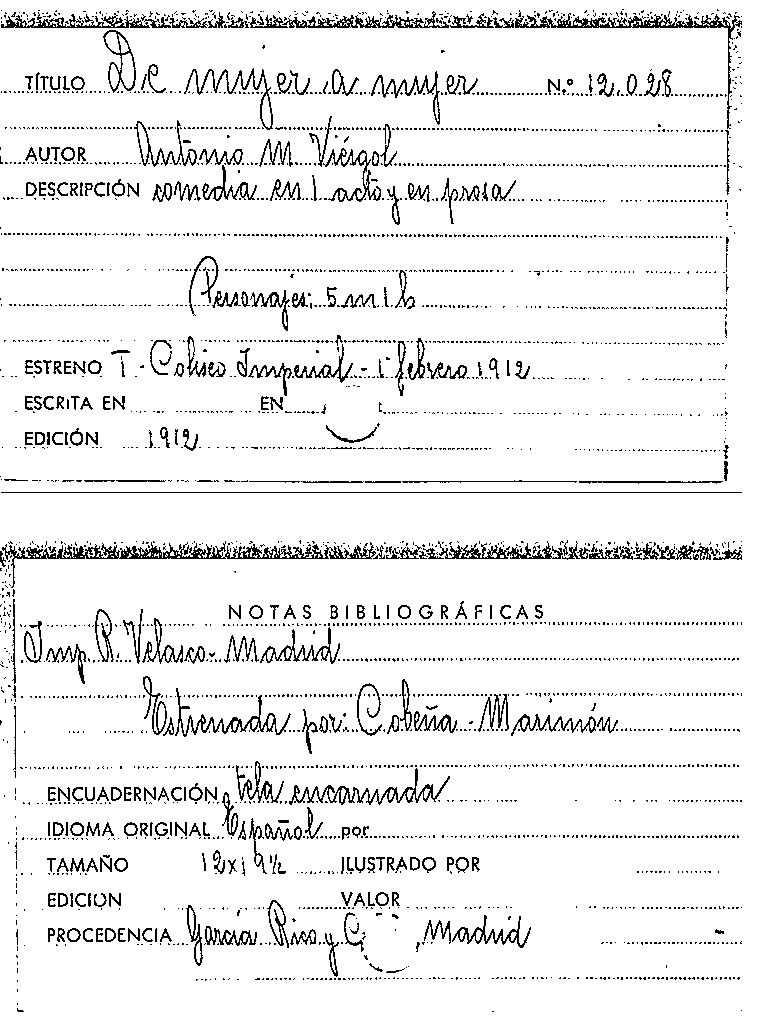 TÍTULO De mujer a mujer N.º 12.028
AUTOR Antonio M. Viérgol
DESCRIPCIÓN comedia en 1 acto y en prosa
Personajes: 5 m 1 h
ESTRENO T - Coliseo Imperial - 1º febrero 1912
ESCRITA EN EN
EDICIÓN 1912
NOTAS BIBLIOGRÁFICAS
Imp R. Velasco - Madrid
Estrenada por: Cobeña - Marimón
ENCUADERNACIÓN tela encarnada
IDIOMA ORIGINAL Español por
TAMAÑO 12x19½ ILUSTRADO POR
EDICION VALOR
PROCEDENCIA García Rico y C , Madrid